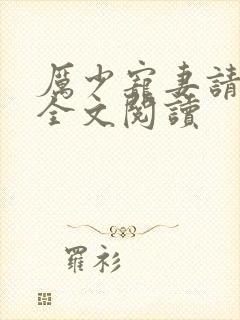 厲少寵妻請
全文閱讀
羅衫